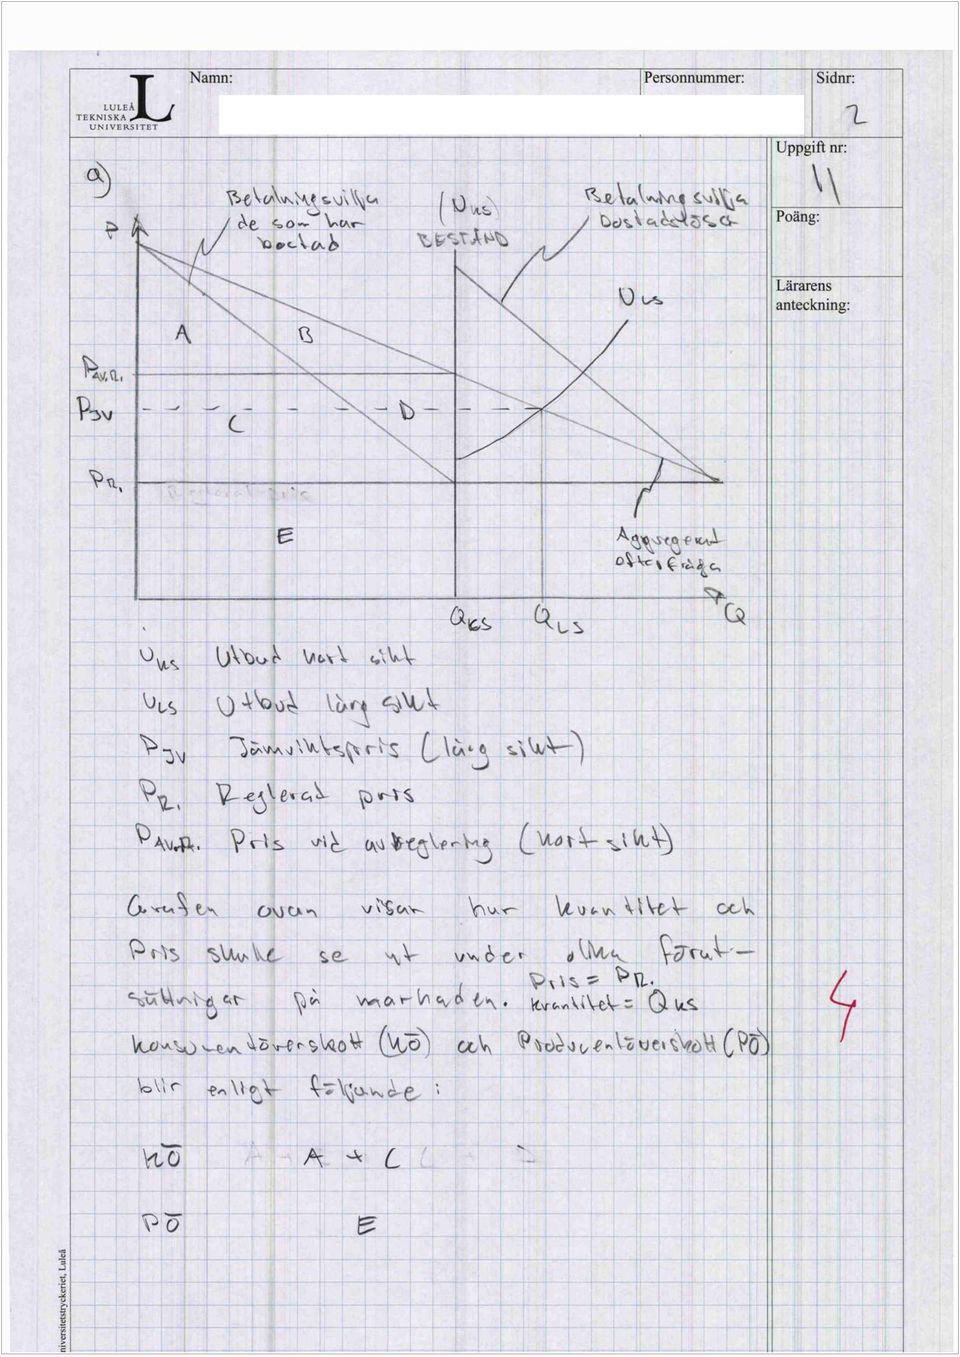 Namn:
Personnummer:
Sidnr:
LULEÅ
TEKNISKA
UNIVERSITET
L
2
Uppgift nr:
11
Poäng:
Lärarens
anteckning:
a)
Betalningsvilja
de som har
bostad
(Uks)
BESTÅND
Betalningsvilja
bostadslösa
P
ULS
A
B
PAV.R.
PJV
C
D
PR.
E
Aggregerad
efterfråga
QKS
QLS
Q
UKS Utbud kort sikt
ULS Utbud lång sikt
PJV Jämviktspris (lång sikt)
PR. Reglerad pris
PAV.R. Pris vid avreglering (kort sikt)
Grafen ovan visar hur kvantitet och
Pris skulle se ut under olika förut-
sättnigar på marknaden. Pris = PR.
kvantitet = Qks
4
Konsumentöverskott (KÖ) och Producentöverskott (PÖ)
blir enligt följande:
KÖ A + C
PÖ E
niversitetstryckeriet, Luleå